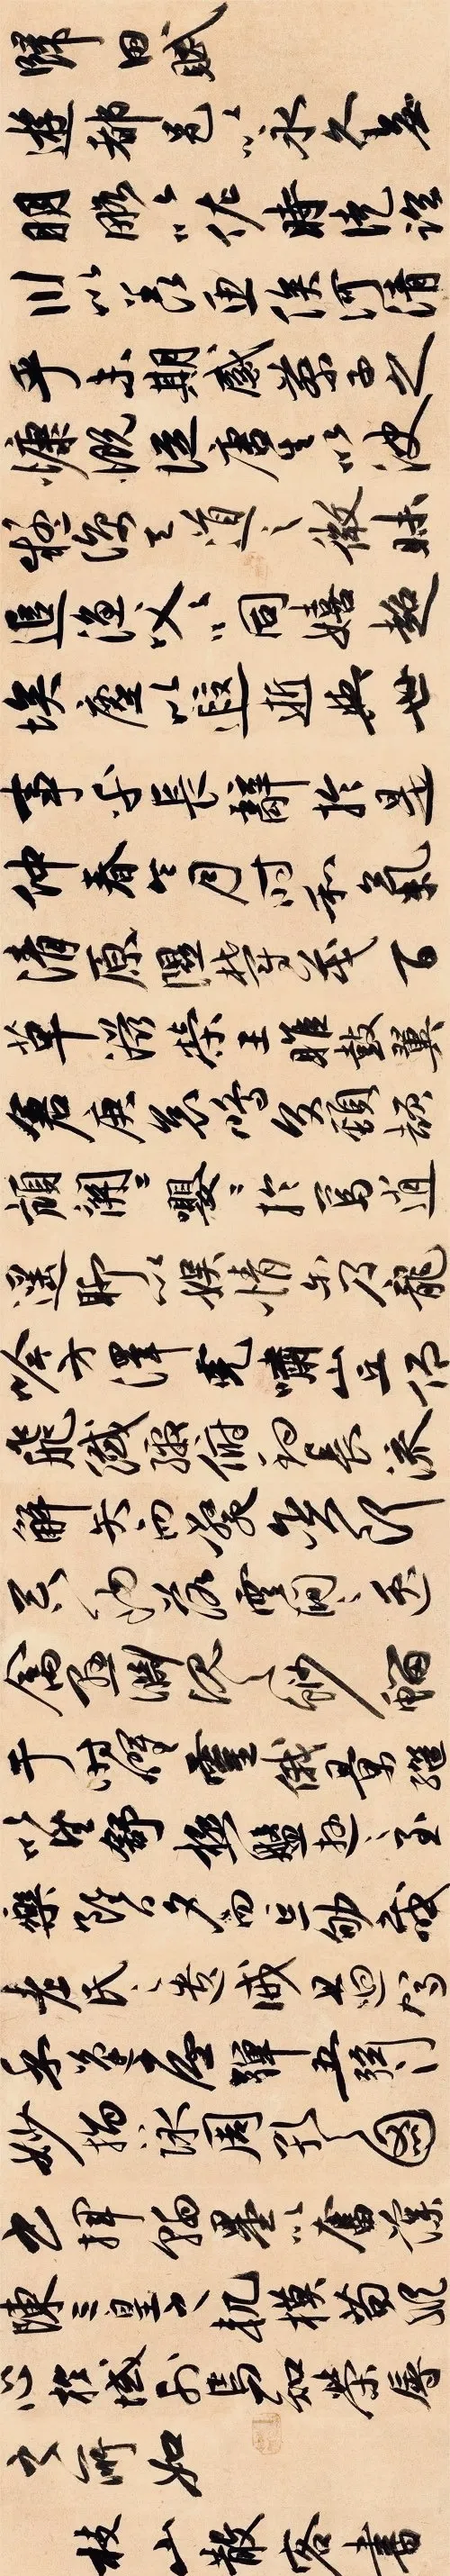 歸田賦
遊都邑以永久無
明略以佐時徒臨
川以羡魚俟河清
乎未期感蔡子之
慷慨從唐生以決
疑諒天道之微昧
追漁父以同嬉超
埃塵以遐逝與世
事乎長辭於是
仲春令月時和氣
清原隰鬱茂百
草滋榮王雎鼓翼
倉庚哀鳴交頸頡
頏關〻嚶〻於焉逍
遙聊以娛情爾乃龍
吟方澤虎嘯山丘仰
飛纖繳俯釣長流
觸矢而斃貪餌
吞鉤落雲間之逸
禽懸淵沉之魦鰡
于時曜靈俄景繼
以望舒極盤遊之至
樂雖日夕而忘劬感
老氏之遺誡且迴駕
乎蓬廬彈五絃
妙指詠周孔之圖
書揮翰墨以奮藻
陳三皇之軌模苟縱
心於域外焉知榮辱
之所如
枝山散客書